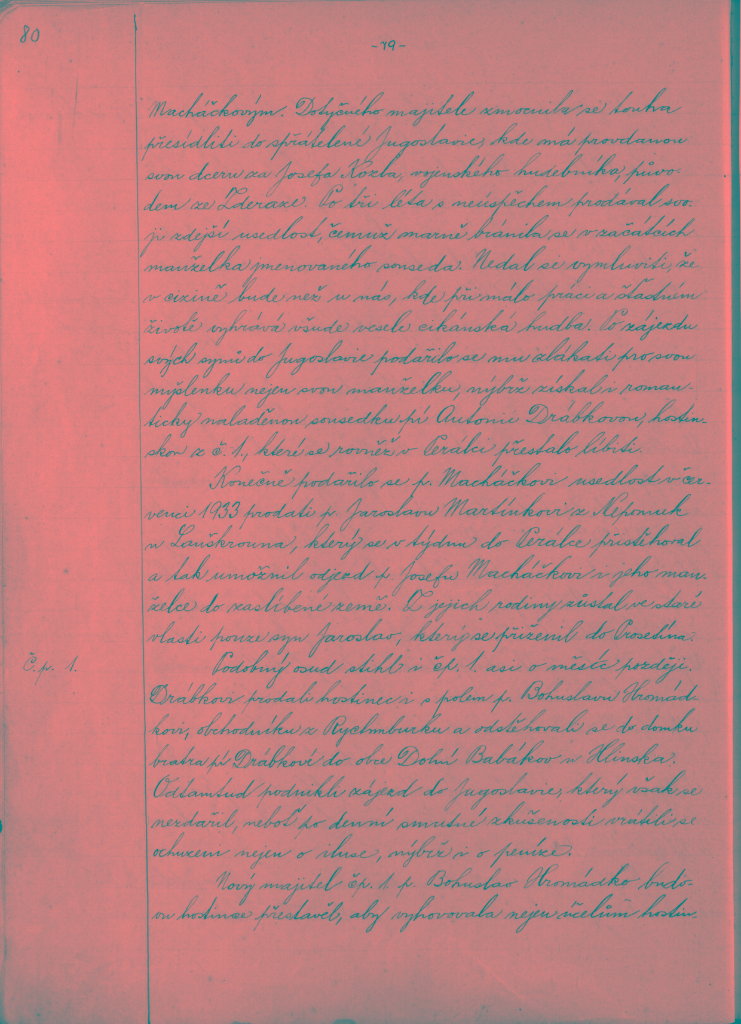 80
-79-
Macháčkovým. Dotyčného majitele zmocnila se touha
přesídliti do spřátelené Jugoslavie, kde má provdanou
svou dceru za Josefa Kozba, vojenského hudebníka, půvo-
dem ze Zderaze. Po tři léta s neúspěchem prodával svo-
ji zdejší usedlost, čemuž marně bránila se v začátcích
manželka jmenovaného souseda. Nedal se vymluviti, že
v cizině bude než u nás, kde při málo práci a šťastném
životě vyhrává všude vesele cikánská hudba. Po zájezdu
svých synů do Jugoslavie podařilo se mu zlákati pro svou
myšlenku nejen svou manželku, nýbrž získal i roman-
ticky naladěnou sousedku pí Antonii Drábkovou, hostin-
skou z č. 1., které se rovněž v Perálci přestalo líbiti.
Konečně podařilo se p. Macháčkovi usedlost v čer-
venci 1933 prodati p. Jaroslavu Martínkovi z Nepomuk
u Lanškrouna, který se v týdnu do Perálce přistěhoval
a tak umožnil odjezd p. Josefu Macháčkovi i jeho man-
želce do zaslíbené země. Z jejich rodiny zůstal ve staré
vlasti pouze syn Jaroslav, který se přiženil do Prosetína.
Č. p. 1.
Podobný osud stihl i čp. 1. asi o měsíc později.
Drábkovi prodali hostinec i s polem p. Bohuslavu Hromád-
kovi, obchodníku z Rychmburku a odstěhovali se do domku
bratra pí Drábkové do obce Dolní Babákov u Hlinska.
Odtamtud podnikli zájezd do Jugoslavie, který však se
nezdařil, neboť po denní smutné zkušenosti vrátili se
ochuzeni nejen o iluse, nýbrž i o peníze.
Nový majitel čp. 1. p. Bohuslav Hromádko budo-
vu hostince přestavěl, aby vyhovovala nejen účelům hostin-